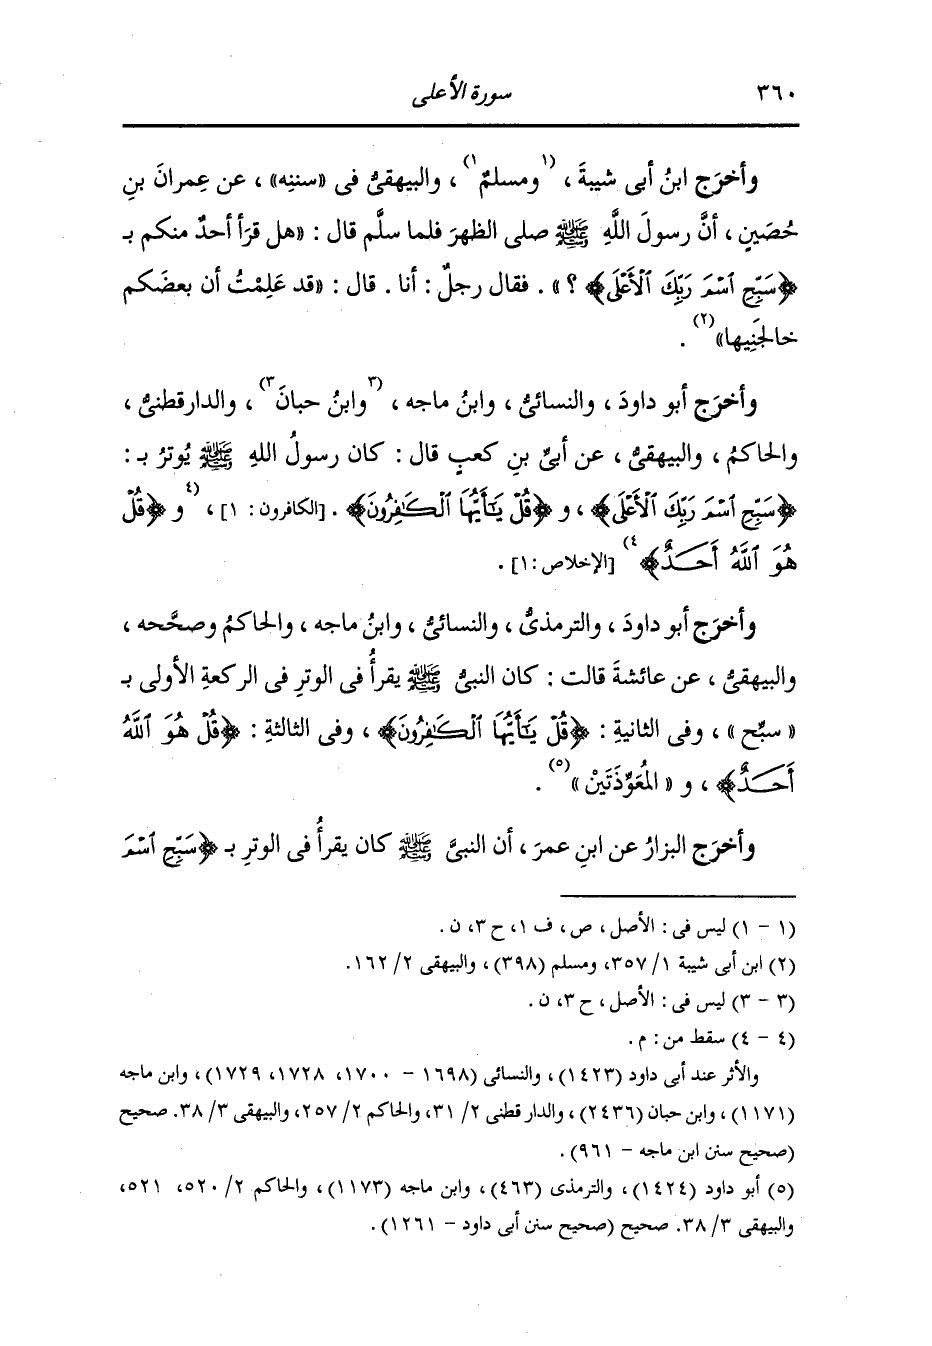 ٣٦٠ سورة الأعلى
وأخرَج ابنُ أبى شيبةَ ، (١ومسلمٌ ١) ، والبيهقىُّ فى «سننِه» ، عن عِمرانَ بنِ
حُصَينٍ ، أنَّ رسولَ اللَّهِ ﷺ صلى الظهرَ فلما سلَّم قال : «هل قرَأ أحدٌ منكم بـ
﴿سَبِّحِ ٱسْمَ رَبِّكَ ٱلْأَعْلَى﴾ ؟ » . فقال رجلٌ : أنا . قال : «قد عَلِمْتُ أن بعضَكم
خالجَنِيها»(٢) .
وأخرَج أبو داودَ ، والنسائىُّ ، وابنُ ماجه ، (٣وابنُ حبانَ ٣) ، والدارقطنىُّ ،
والحاكمُ ، والبيهقىُّ ، عن أبىِّ بنِ كعبٍ قال : كان رسولُ اللهِ ﷺ يُوترُ بـ :
﴿سَبِّحِ ٱسْمَ رَبِّكَ ٱلْأَعْلَى﴾ ، و ﴿قُلْ يَٰٓأَيُّهَا ٱلْكَٰفِرُونَ﴾ . [الكافرون : ١] ، (٤ و ﴿قُلْ
هُوَ ٱللَّهُ أَحَدٌ﴾ ٤) [الإخلاص : ١] .
وأخرَج أبو داودَ ، والترمذىُّ ، والنسائىُّ ، وابنُ ماجه ، والحاكمُ وصحَّحه ،
والبيهقىُّ ، عن عائشةَ قالت : كان النبىُّ ﷺ يقرأُ فى الوترِ فى الركعةِ الأولى بـ
« سبِّح » ، وفى الثانيةِ : ﴿قُلْ يَٰٓأَيُّهَا ٱلْكَٰفِرُونَ﴾ ، وفى الثالثةِ : ﴿قُلْ هُوَ ٱللَّهُ
أَحَدٌ﴾ ، و « المُعَوِّذَتَيْنْ »(٥) .
وأخرَج البزارُ عن ابنِ عمرَ ، أن النبىَّ ﷺ كان يقرأُ فى الوترِ بـ ﴿سَبِّحِ ٱسْمَ
(١ - ١) ليس فى : الأصل ، ص ، ف ١، ح ٣، ن .
(٢) ابن أبى شيبة ١/ ٣٥٧، ومسلم (٣٩٨) ، والبيهقى ٢/ ١٦٢.
(٣ - ٣) ليس فى : الأصل ، ح ٣، ن .
(٤ - ٤) سقط من : م .
والأثر عند أبى داود (١٤٢٣) ، والنسائى (١٦٩٨ - ١٧٠٠، ١٧٢٨، ١٧٢٩) ، وابن ماجه
(١١٧١) ، وابن حبان (٢٤٣٦) ، والدارقطنى ٢/ ٣١، والحاكم ٢/ ٢٥٧، والبيهقى ٣/ ٣٨. صحيح
(صحيح سنن ابن ماجه - ٩٦١) .
(٥) أبو داود (١٤٢٤) ، والترمذى (٤٦٣) ، وابن ماجه (١١٧٣) ، والحاكم ٢/ ٥٢٠، ٥٢١،
والبيهقى ٣/ ٣٨. صحيح (صحيح سنن أبى داود - ١٢٦١) .